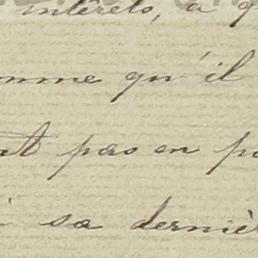 intérêts, a q
omme qu'il
nt pas en po
à sa derniè